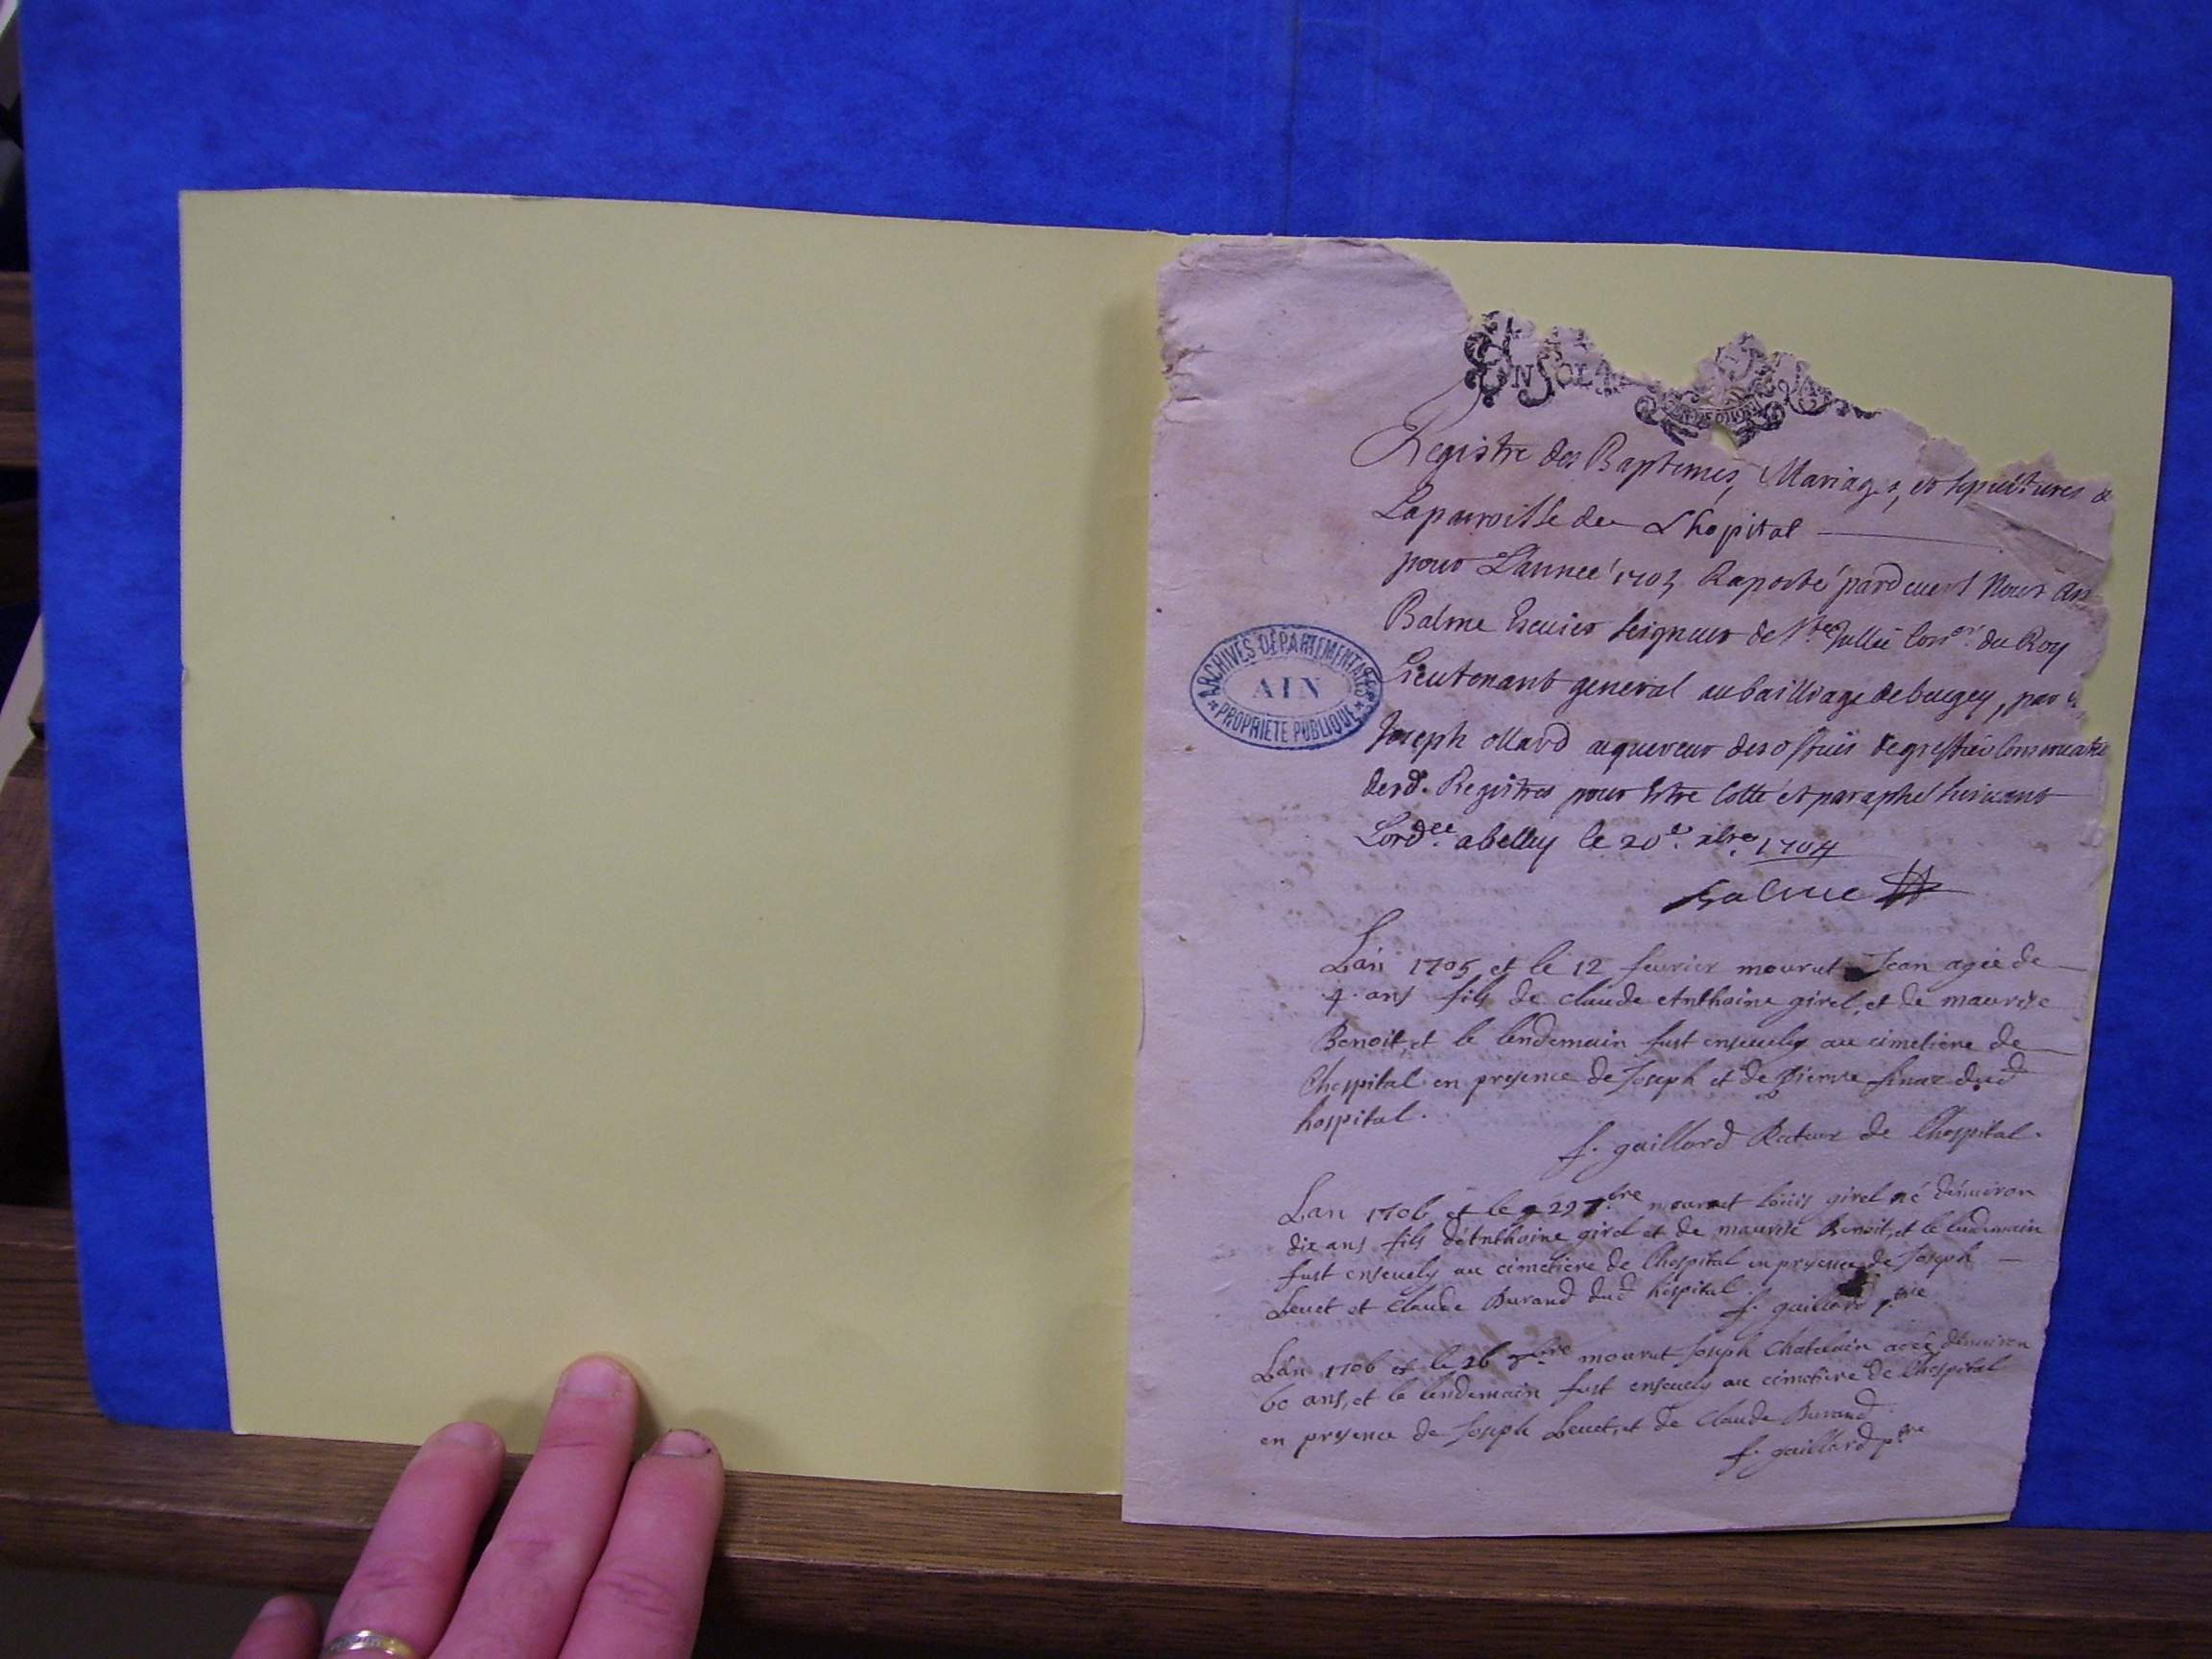 EN SOL
Registre des Baptemes, Mariages, et sepultures de
La parroisse de Lhopital
pour Lannee 1705 Raporté pardeuant Nous
Balme Escuier seigneur de Ste Jullie Con.er du Roy
Lieutenant general au bailliage de bugey, par
Joseph ollard aquereur des offices de greffier Conservateur
desd. Registres pour Estre Cotté et paraphé suiuant
Lord.ce a belley le 20.e xbre 1704
Balme
Lan 1705 et le 12 feurier mourut Jean agée de
4. ans fils de claude Anthoine girel, et de maurise
Benoit, et le lendemain fust enseuely au cimetiere de
lhospital en presence de Joseph et de pierre finaz dud
hospital.
f. gaillard Recteur de lhospital.
ARCHIVES DÉPARTEMENTALES
AIN
PROPRIÉTÉ PUBLIQUE
Lan 1706 et le 29 7bre mourut loüis girel né d'enuiron
dix ans fils d'Anthoine girel et de maurise Benoit, et le lendemain
fust enseuely au cimetiere de lhospital en presence de Joseph
Leuet et claude Durand dud hospital. f. gaillard p.bre
Lan 1706 et le 26 mourut Joseph Chatelain agée d'enuiron
60 ans, et le lendemain fust enseuely au cimetiere de lhospital
en presence de Joseph Leuet, et de claude Durand
f. gaillard p.bre